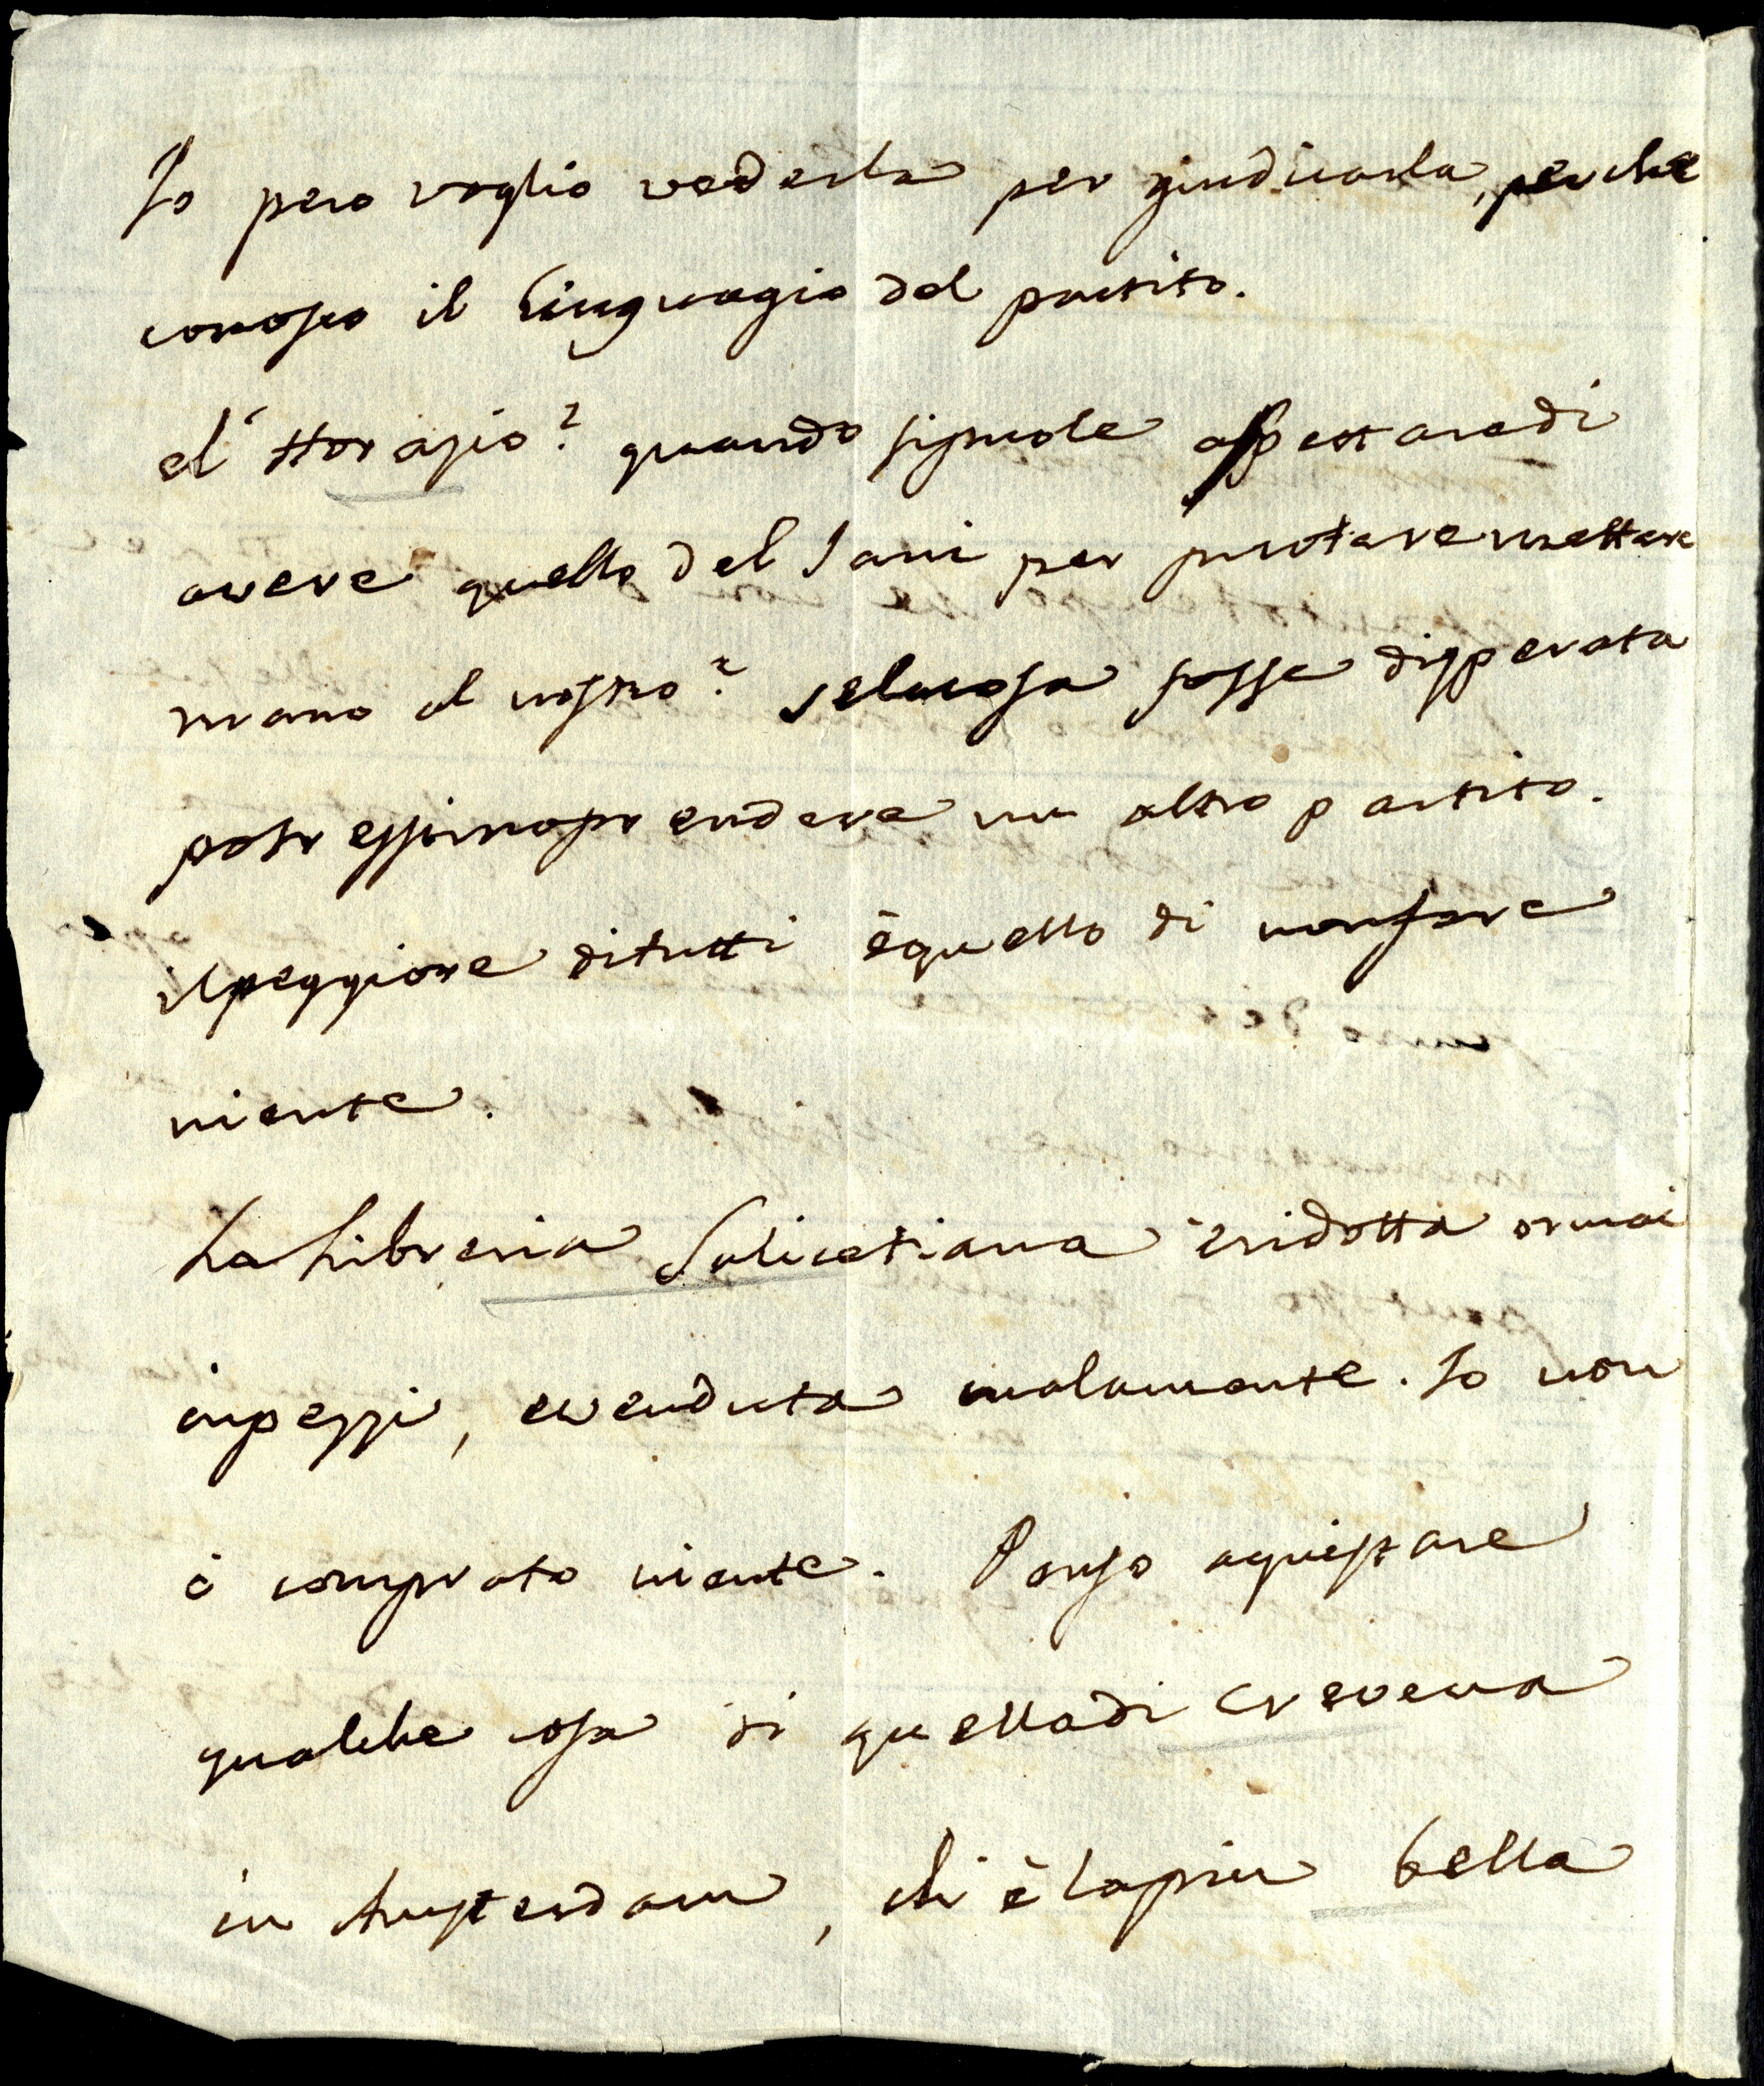 Io pero voglio vederla per giudicarla, perche
conosco il linguagio del partito.
el' Horazio? quando si puole aspettare di
avere quello del Jani per puotere mettere
mano al nostro? se la cosa fosse disperata
potressimo prendere un altro partito.
il peggiore di tutti è quello di non fare
niente.
La Libreria Salicetiana è ridotta ormai
in pezzi, e venduta malamente. Io non
ò comprato niente. Penso aquistare
qualche cosa di quella di Crevena
in Amsterdam, chi è la piu bella